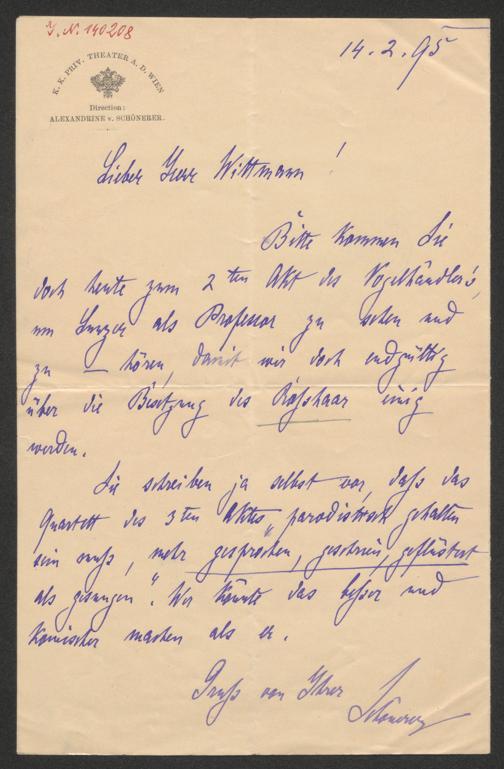 J. N. 140208
K. K. PRIV. THEATER A. D. WIEN
Direction:
ALEXANDRINE v. SCHÖNERER.
14.2.95
Lieber Herr Wittmann!
Bitte kommen Sie
doch heute zum 2ten Akt des Vogelhändler's,
um als Professor zu sehen und
zu — hören, damit wir doch endgültig
über die Besetzung des Roßhaar einig
werden.
Sie schreiben ja selbst vor, daß das
Quartett des 3ten Aktes „parodistisch gehalten
sein muß, mehr gesprochen, geschrien, geflüstert
als gesungen". Wer könnte das besser und
komischer machen als er.
Gruß von Ihrer
Schönerer